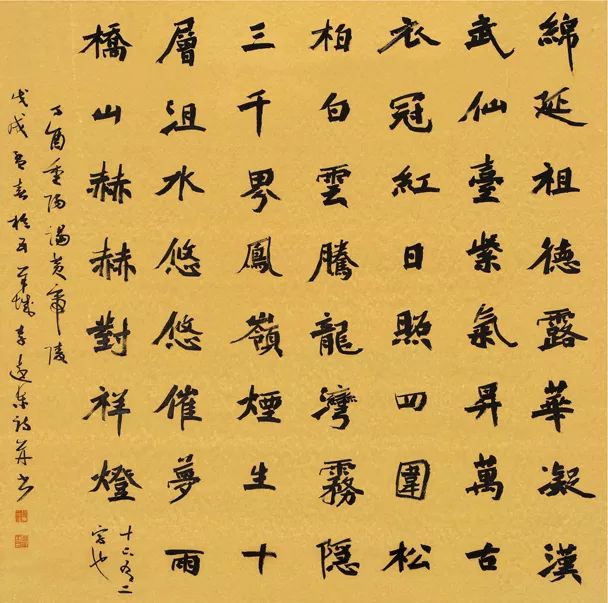 綿延祖德露華凝漢
武仙臺紫氣昇萬古
衣冠紅日照四圍松
柏白雲騰龍灣霧隱
三千界鳳嶺煙生十
層沮水悠悠催夢雨
橋山赫赫對祥燈
十下二
字也
丁酉重陽謁黃帝陵
戊戌孟春於五羊城李遠東詩并書